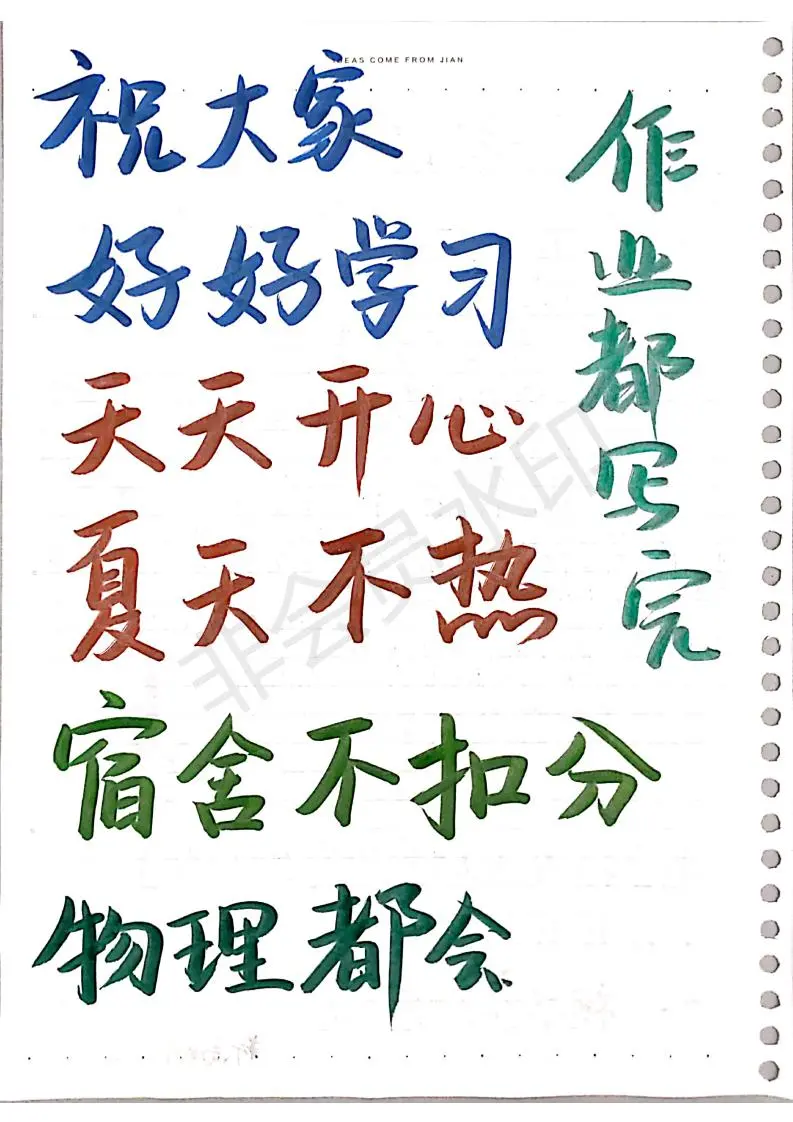 IDEAS COME FROM JIAN
祝大家
好好学习
天天开心
夏天不热
宿舍不扣分
物理都会
作业都写完
非会员水印